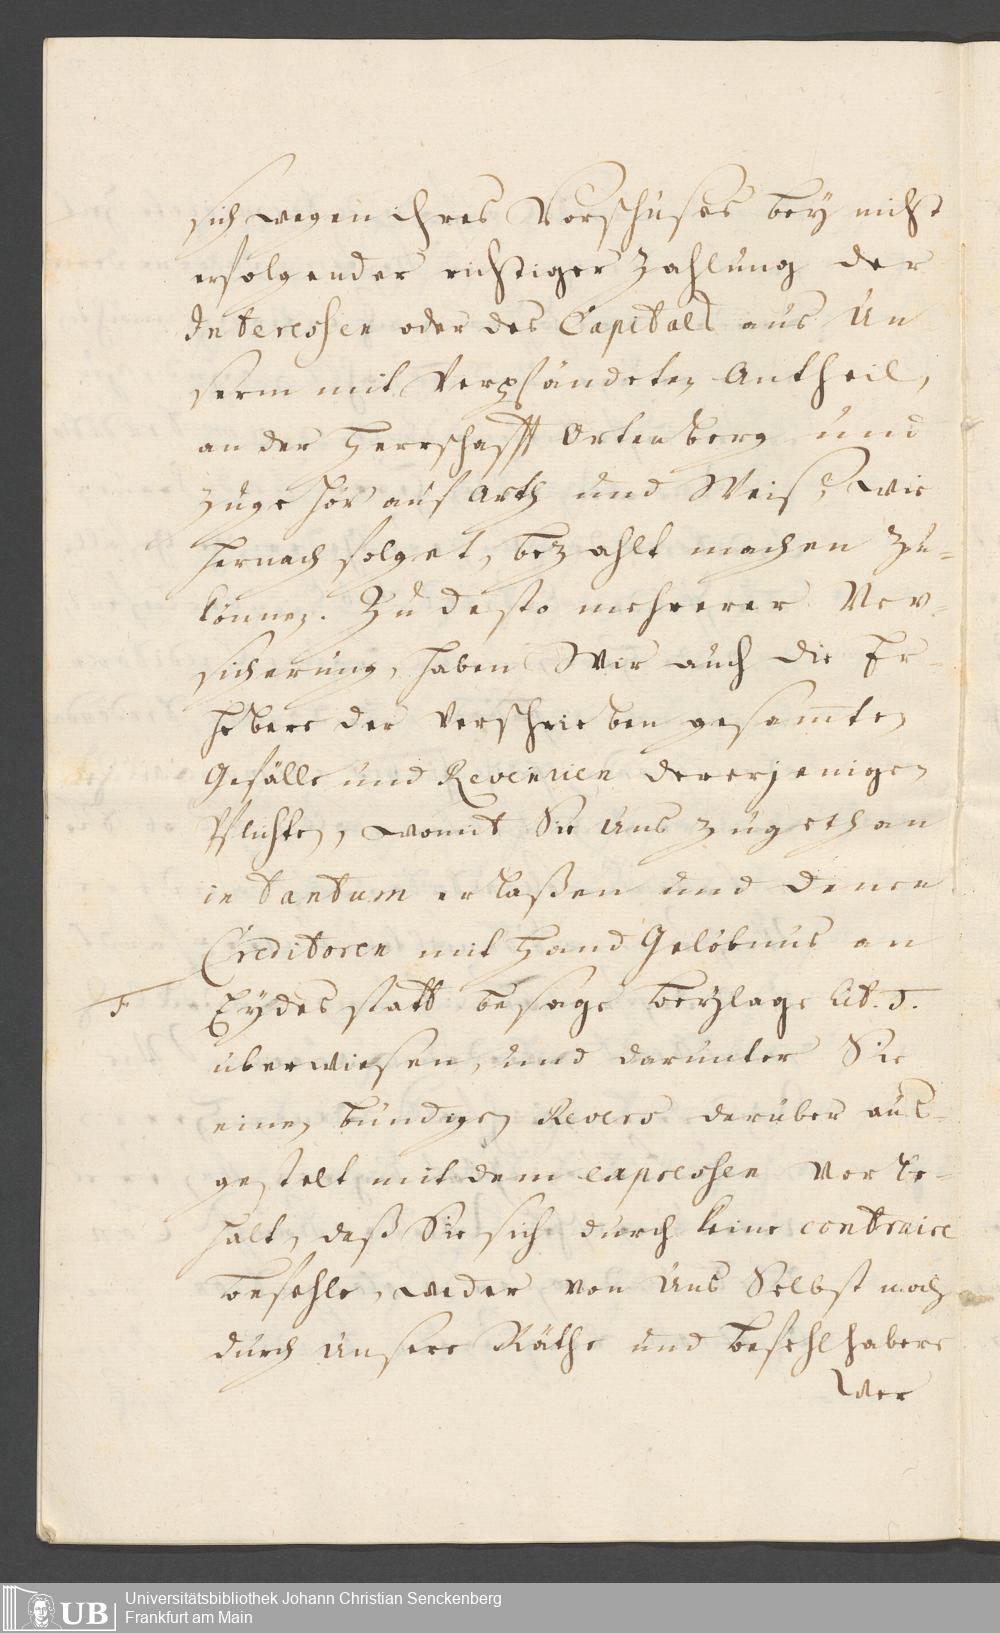 sich wegen ihres Vorschußes bey nicht
erfolgender richtiger Zahlung der
Interessen oder des Capitals aus Un
serm mit verpfändeten Antheil,
an der Herrschafft Ortenberg und
zugehör auf Arth und Weise wie
hernach folget, bezahlt machen zu-
können. Zu desto mehrerer Ver-
sicherung, haben Wir auch die Er-
hebere der verschrieben gesamten
Gefälle und Revenüen dererjenigen
Pflichten, womit Sie Uns zugethan
in tantum erlaßen und denen
Creditoren mit Hand Gelöbnus an
F
Eydes statt besage beylage Lit. F.
überwiesen, und darunter Sie
einen bündigen Revers darüber aus-
gestelt mit dem expressen Vorbe-
halt, daß Sie sich durch keine contraire
befehle, weder von Uns Selbst noch
durch Unsere Räthe und befehlhabere
wer
UB
Universitätsbibliothek Johann Christian Senckenberg
Frankfurt am Main